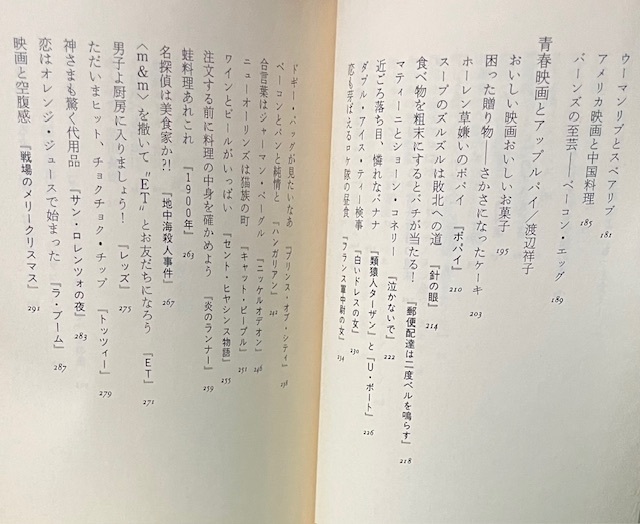 ウーマンリブとスペアリブ 181
アメリカ映画と中国料理 185
バーンズの至芸――ベーコン・エッグ 189
青春映画とアップルパイ／渡辺祥子
おいしい映画おいしいお菓子 195
困った贈り物――さかさになったケーキ 203
ホーレン草嫌いのポパイ 『ポパイ』 210
スープのズルズルは敗北への道 『針の眼』 214
食べ物を粗末にするとバチが当たる！ 『郵便配達は二度ベルを鳴らす』 218
マティーニとショーン・コネリー 『泣かないで』 222
近ごろ落ち目、憐れなバナナ 『類猿人ターザン』と『U・ボート』 226
ダブル・アイス・ティー検事 『白いドレスの女』 230
恋も芽ばえるロケ隊の昼食 『フランス軍中尉の女』 234
ドギー・バッグが見たいなあ 『プリンス・オブ・シティ』 238
ベーコンとパンと純情と 『ハンガリアン』 242
合言葉はジャーマン・ベーグル 『ニッケルオデオン』 246
ニューオーリンズは猫族の町 『キャット・ピープル』 251
ワインとビールがいっぱい 『セント・ヒヤシンス物語』 255
注文する前に料理の中身を確かめよう 『炎のランナー』 259
蛙料理あれこれ 『1900年』 263
名探偵は美食家か?! 『地中海殺人事件』 267
〈m&m〉を撒いて〝ET〟とお友だちになろう 『ET』 271
男子よ厨房に入りましょう！ 『レッズ』 275
ただいまヒット、チョクチョク・チップ 『トッツィー』 279
神さまも驚く代用品 『サン・ロレンツォの夜』 283
恋はオレンジ・ジュースで始まった 『ラ・ブーム』 287
映画と空腹感 『戦場のメリークリスマス』 291